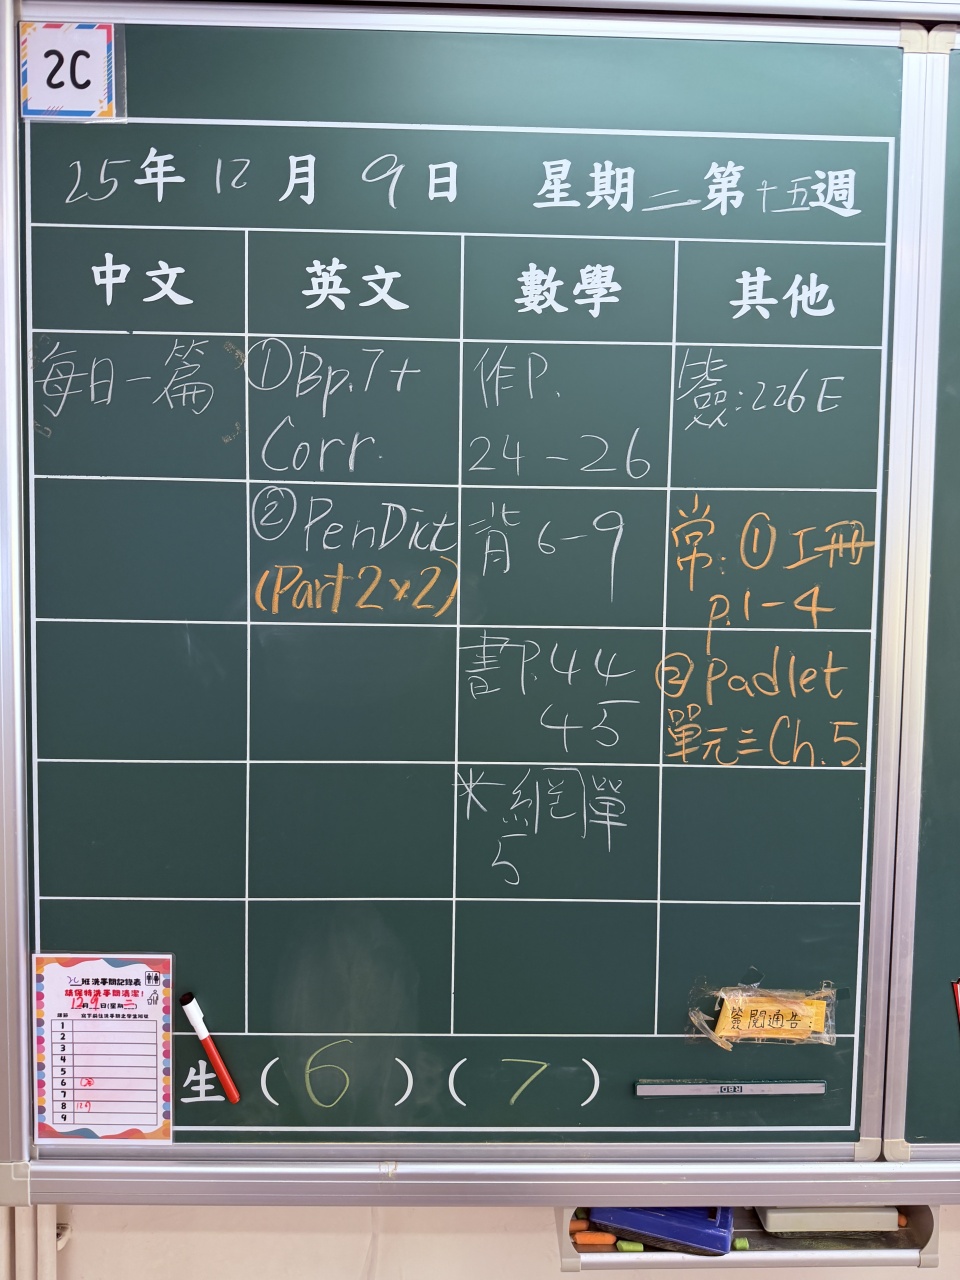 2C
25年12月9日 星期二第十五週
中文 英文 數學 其他
每日一篇
①Bp.7+
Corr.
②PenDict
(Part2x2)
作P.
24-26
背6-9
書P.44
45
*網單
5
簽:226E
常:①工冊
p.1-4
②Padlet
單元三Ch.5
簽閱通告:
生(6)(7)
2C班洗手間記錄表
請保持洗手間清潔!
12月9日(星期二)
1
2
3
4
5
6
7
8
9